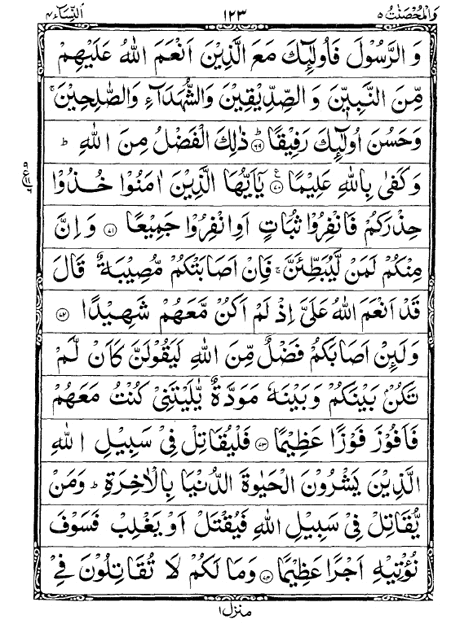 وَالْمُحْصَنٰتُ ۵ ۱۲۳ اَلنِّسَآء ۴
وَ الرَّسُوْلَ فَاُولٰٓئِكَ مَعَ الَّذِيْنَ اَنْعَمَ اللّٰهُ عَلَيْهِمْ
مِّنَ النَّبِيّٖنَ وَ الصِّدِّيْقِيْنَ وَالشُّهَدَآءِ وَالصّٰلِحِيْنَ ۚ
وَحَسُنَ اُولٰٓئِكَ رَفِيْقًا ؕ۶۹ ذٰلِكَ الْفَضْلُ مِنَ اللّٰهِ ؕ
وَ كَفٰى بِاللّٰهِ عَلِيْمًا ۷۰ يٰۤاَيُّهَا الَّذِيْنَ اٰمَنُوْا خُذُوْا
حِذْرَكُمْ فَانْفِرُوْا ثُبَاتٍ اَوِ انْفِرُوْا جَمِيْعًا ۷۱ وَ اِنَّ
مِنْكُمْ لَمَنْ لَّيُبَطِّئَنَّ ۚ فَاِنْ اَصَابَتْكُمْ مُّصِيْبَةٌ قَالَ
قَدْ اَنْعَمَ اللّٰهُ عَلَيَّ اِذْ لَمْ اَكُنْ مَّعَهُمْ شَهِيْدًا ۷۲
وَلَئِنْ اَصَابَكُمْ فَضْلٌ مِّنَ اللّٰهِ لَيَقُوْلَنَّ كَاَنْ لَّمْ
تَكُنْۢ بَيْنَكُمْ وَبَيْنَهٗ مَوَدَّةٌ يّٰلَيْتَنِيْ كُنْتُ مَعَهُمْ
فَاَفُوْزَ فَوْزًا عَظِيْمًا ۷۳ فَلْيُقَاتِلْ فِيْ سَبِيْلِ اللّٰهِ
الَّذِيْنَ يَشْرُوْنَ الْحَيٰوةَ الدُّنْيَا بِالْاٰخِرَةِ ؕ وَمَنْ
يُّقَاتِلْ فِيْ سَبِيْلِ اللّٰهِ فَيُقْتَلْ اَوْ يَغْلِبْ فَسَوْفَ
نُؤْتِيْهِ اَجْرًا عَظِيْمًا ۷۴ وَمَا لَكُمْ لَا تُقَاتِلُوْنَ فِيْ
منزل ۱